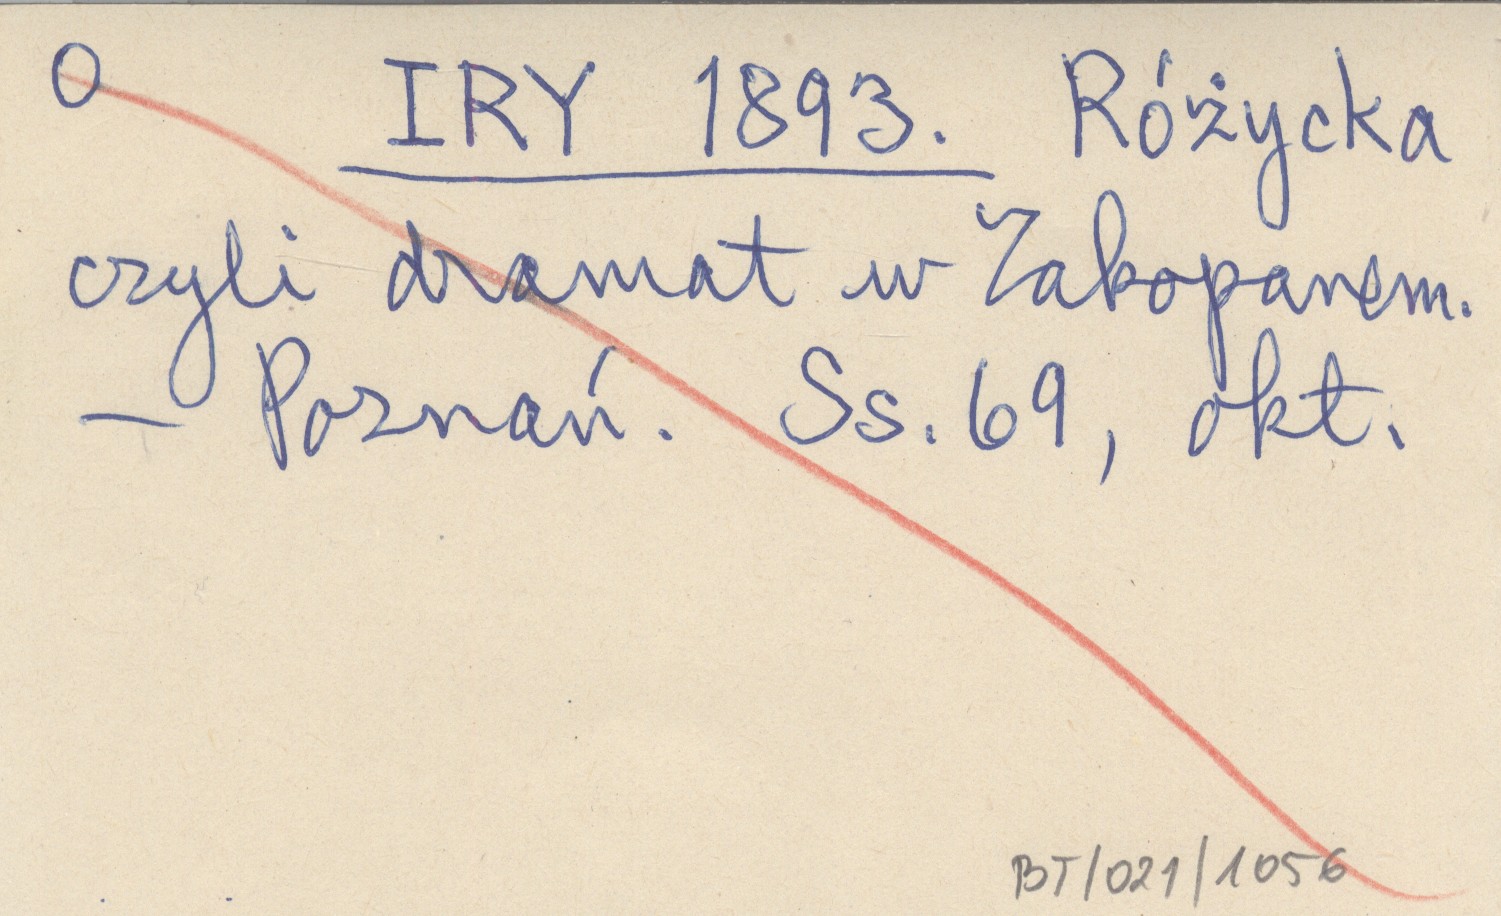 O IRY 1893. Różycka
czyli dramat w Zakopanem.
— Poznań. Ss. 69, okt.
BT/021/1056